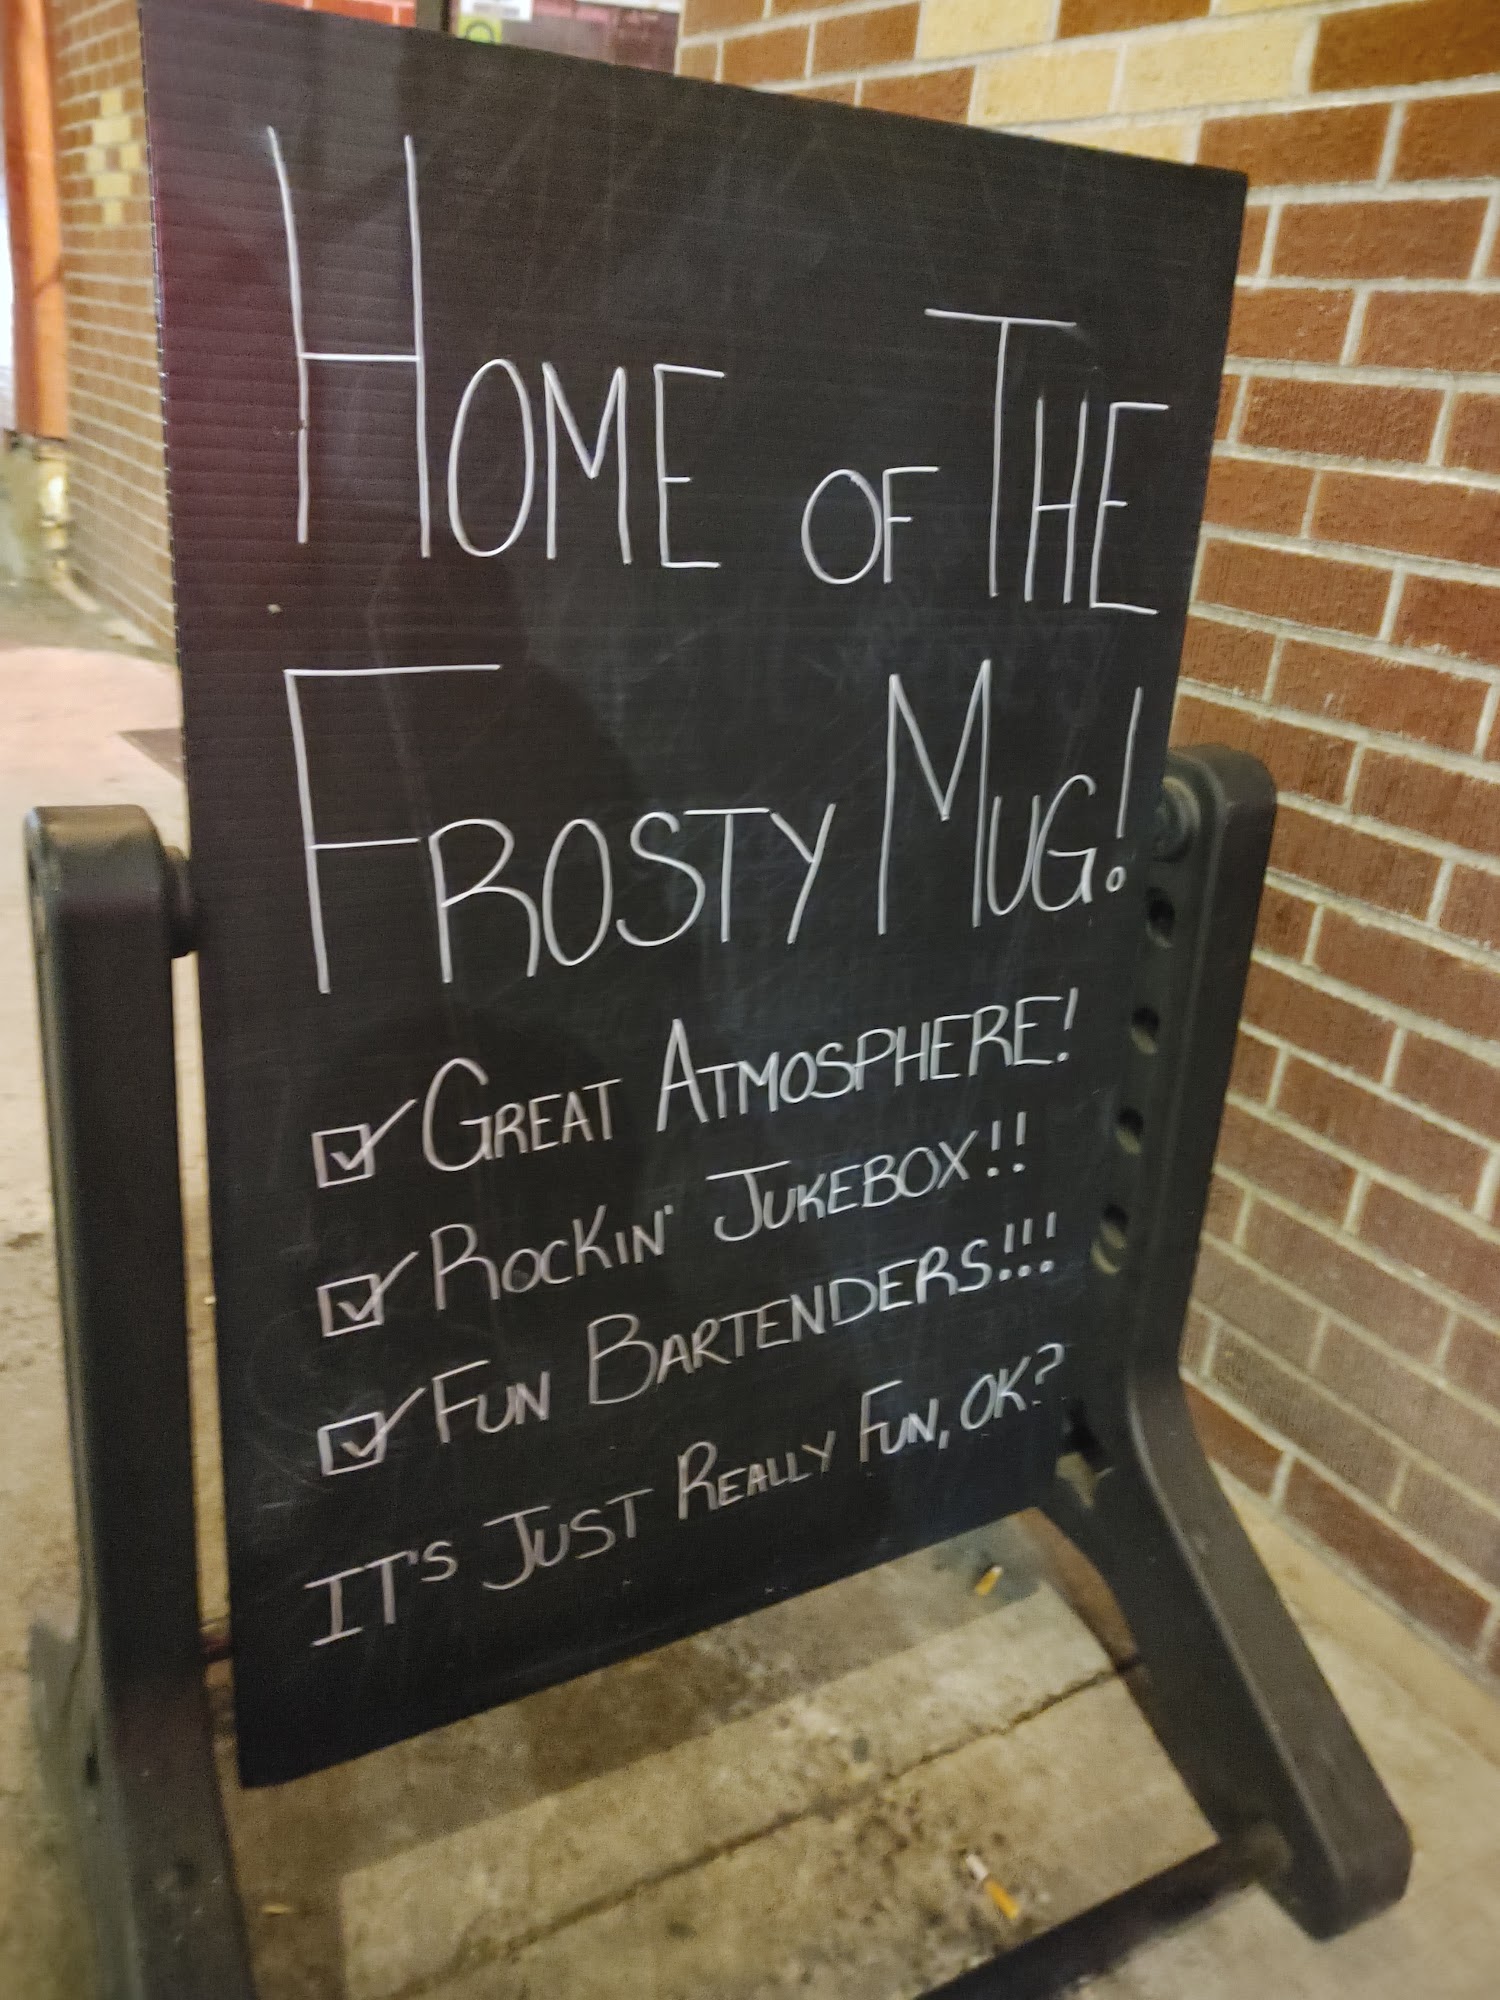 HOME OF THE
FROSTY MUG!
☑ GREAT ATMOSPHERE!
☑ ROCKIN' JUKEBOX!!
☑ FUN BARTENDERS!!!
IT'S JUST REALLY FUN, OK?